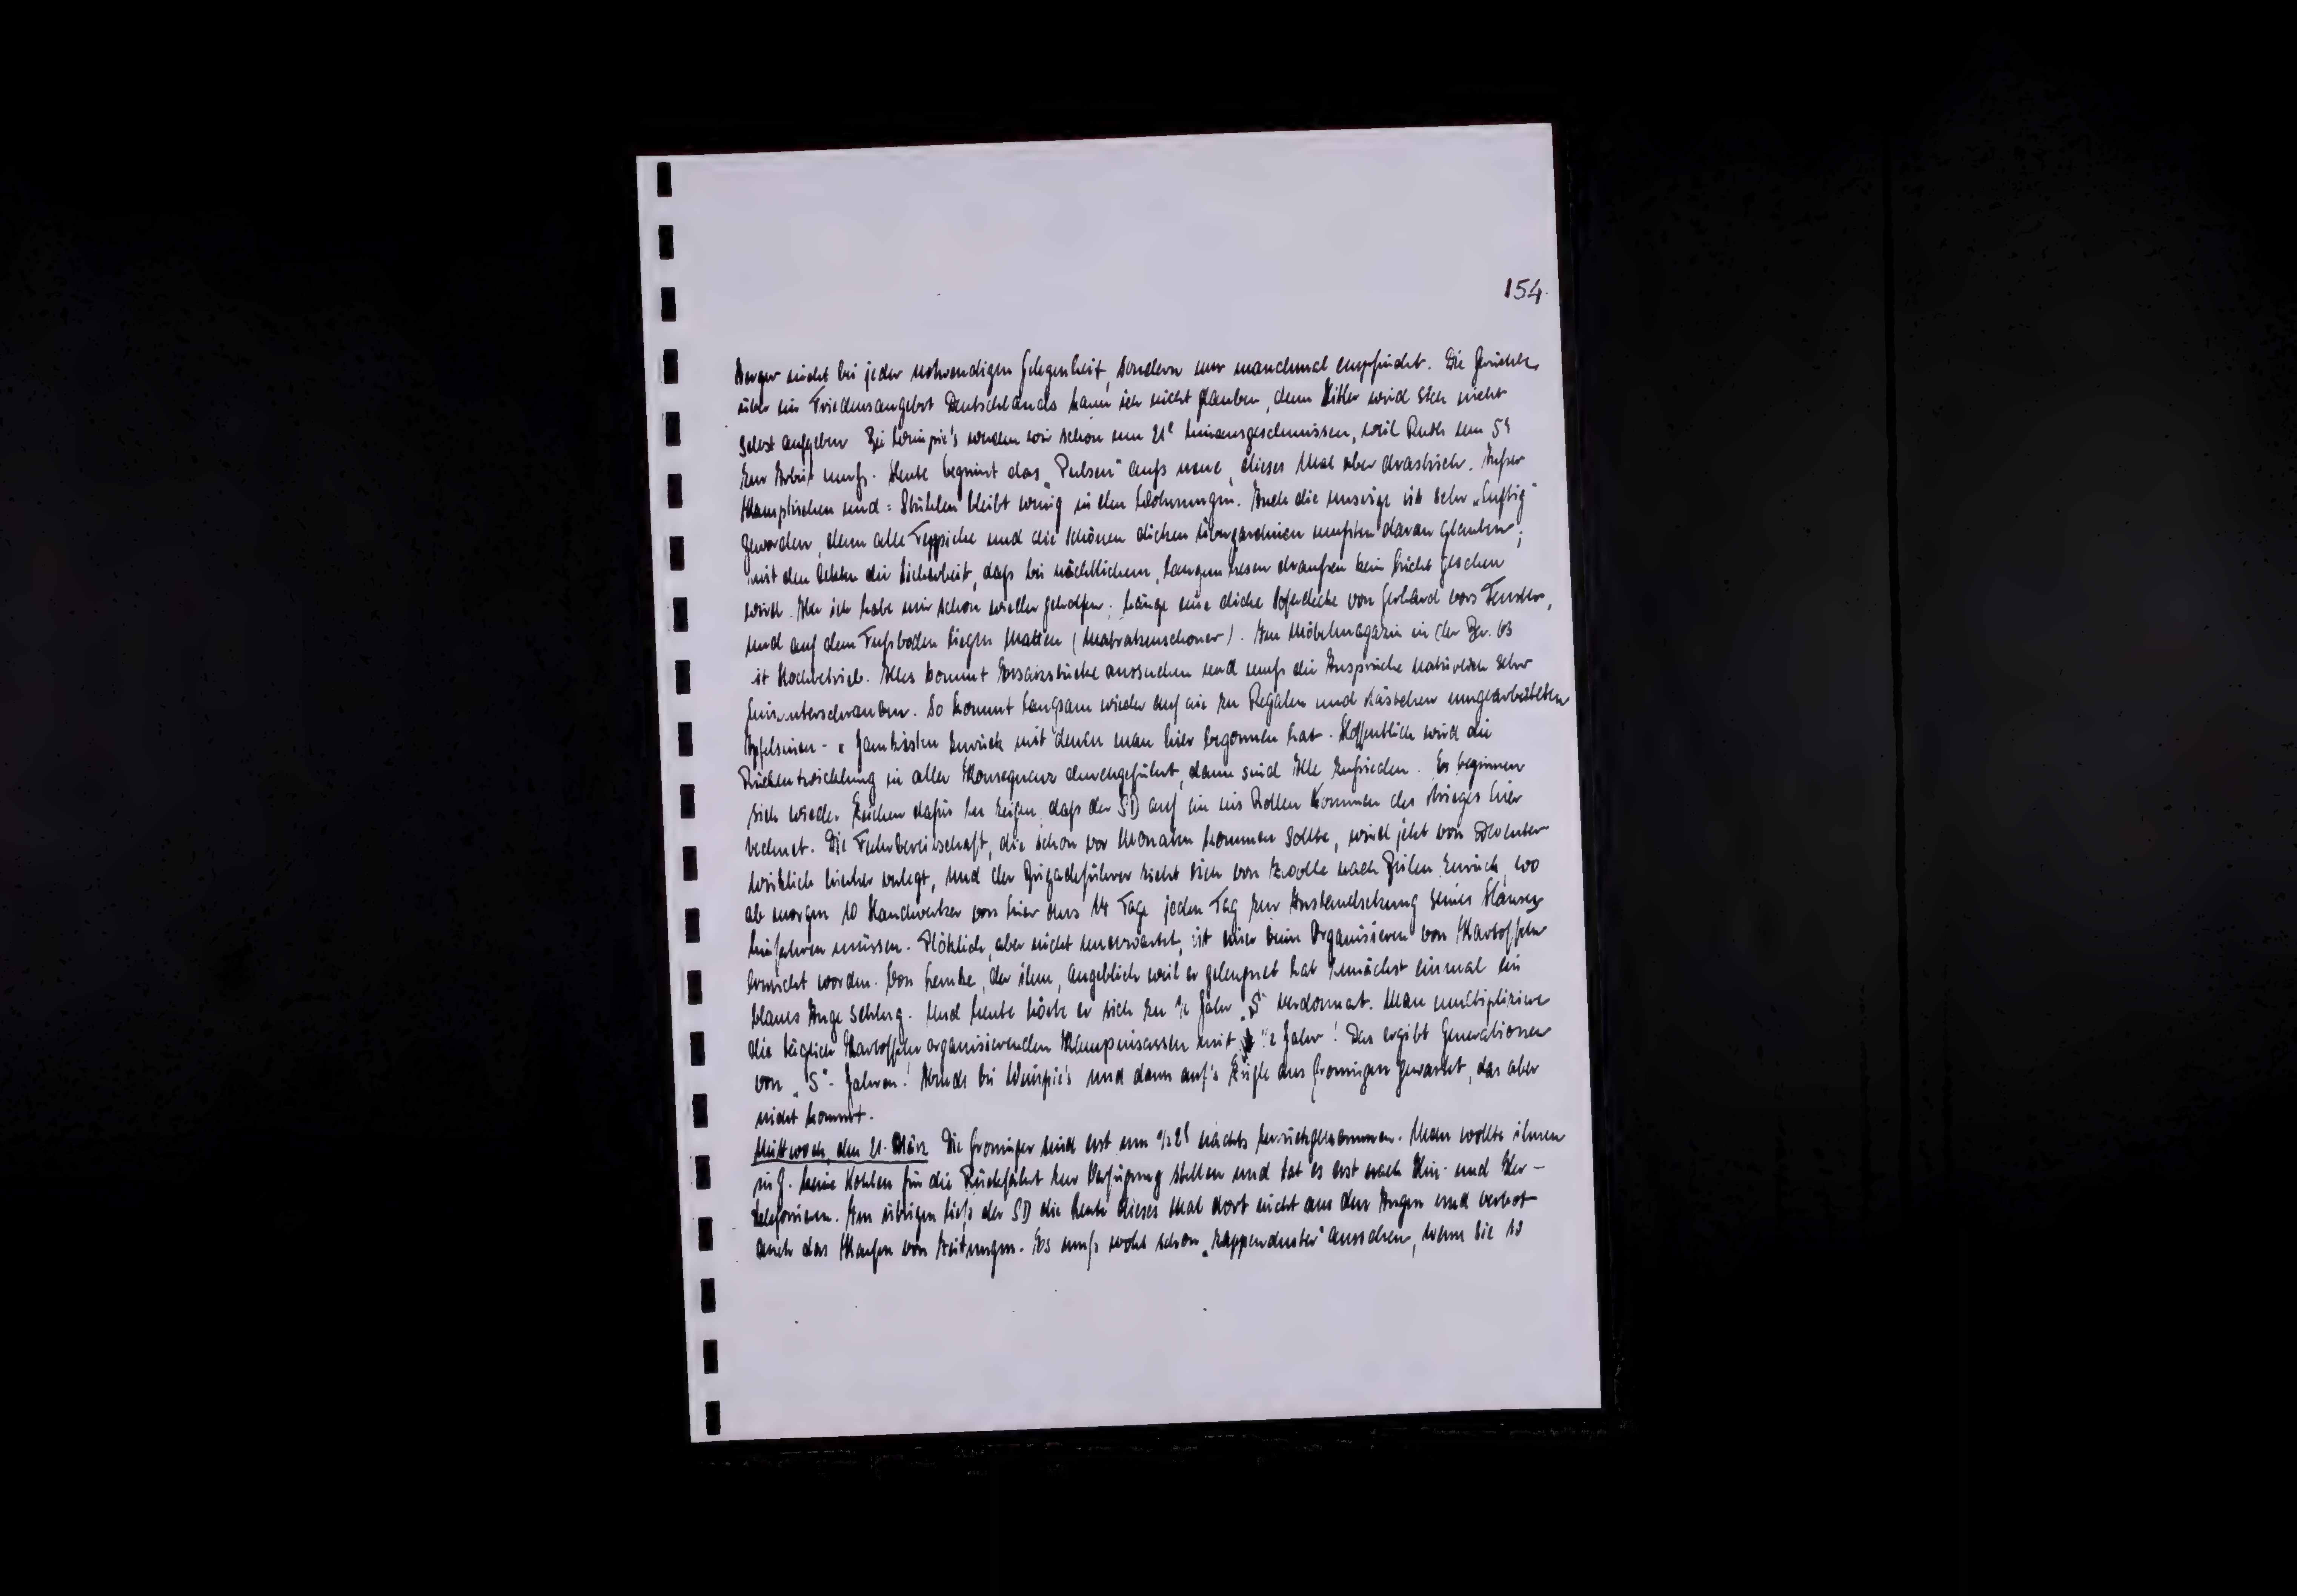 154.
Aerger nicht bei jeder notwendigen Gelegenheit, sondern nur manchmal empfindet. Die Gerüchte
über ein Friedensangebot Deutschlands kann ich nicht glauben, denn Hitler wird sich nicht
selbst aufgeben. Bei Weinpie's werden wir schon um 21° hinausgeschmissen, weil Ruth um 5
zur Arbeit muß. Heute beginnt das „Pulsen" aufs neue, dieses Mal aber drastisch. Außer
Klapptischen und = Stühlen bleibt wenig in den Wohnungen. Auch die unsrige ist sehr „luftig"
geworden, denn alle Teppiche und die schönen dicken Übergardinen mußten daran glauben;
mit den letzten die Sicherheit, daß bei nächtlichem, langem Lesen draußen kein Licht gesehen
wird. Aber ich habe mir schon wieder geholfen: hänge eine dicke Sofadecke von Gerhard vors Fenster,
und auf dem Fußboden liegen Matten (Matratzenschoner). Im Möbelmagazin in der Bar. 63
ist Hochbetrieb. Alles kommt Ersatzstücke aussuchen und muß die Ansprüche natürlich sehr
herunterschrauben. So kommt langsam wieder auf die zu Regalen und Kästchen umgearbeiteten
Apfelsinen- u. Jamkisten zurück mit denen man hier begonnen hat. Hoffentlich wird die
Rückentwicklung in aller Konsequenz durchgeführt, dann sind Alle zufrieden. Es beginnen
sich wieder Zeichen dafür zu zeigen, daß der SD auf ein ins Rollen kommen des Krieges hier
rechnet. Die Fahrbereitschaft, die schon vor Monaten kommen sollte, wird jetzt von
wirklich hierher verlegt, und der Brigadeführer zieht sich von Zwolle nach Beilen zurück, wo
ab morgen 10 Handwerker von hier aus 14 Tage jeden Tag zur Instandsetzung seines Hauses
hinfahren müssen. Plötzlich, aber nicht unerwartet, ist einer beim Organisieren von Kartoffeln
erwischt worden. Von Lemke, der ihm, angeblich weil er geleugnet hat zunächst einmal ein
blaues Auge schlug. Und heute hörte er sich zu ½ Jahr „S" verdonnert. Man multipliziere
die täglich Kartoffeln organisierenden Kampinsassen mit ½ Jahr! Das ergibt Generationen
von „S"-Jahren! Abends bei Weinpie's und dann auf's Zügle aus Groningen gewartet, das aber
nicht kommt.
Mittwoch, den 21. März Die Groninger sind erst um ½2 nachts zurückgekommen. Man wollte ihnen
in G. keine Kohlen für die Rückfahrt zur Verfügung stellen und tat es erst nach Hin- und Her-
telefonieren. Im übrigen ließ der SD die Leute dieses Mal dort nicht aus den Augen und verbot
auch das Kaufen von Zeitungen. Es muß wohl schon „zappenduster" aussehen, wenn Sie so